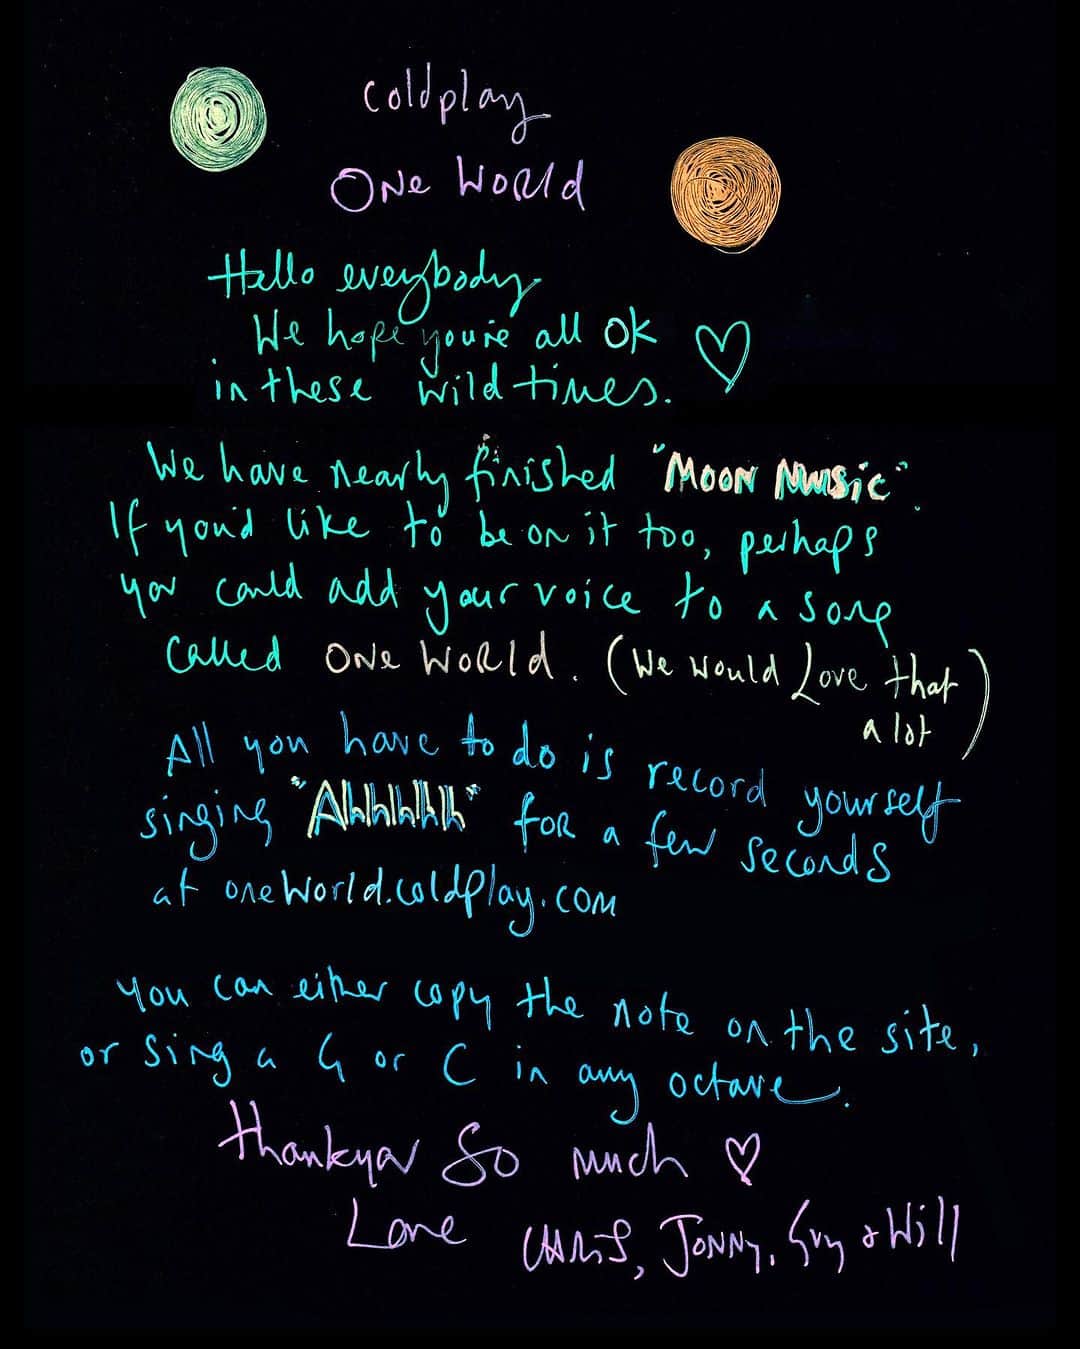 coldplay
ONe WORld
Hello everybody
We hope you're all OK
in these wild times.
We have nearly finished "MOON MUSiC".
If you'd like to be on it too, perhaps
you could add your voice to a song
called ONe WORld. (We would Love that
a lot)
All you have to do is record yourself
singing "Ahhhhhh" for a few seconds
at oneworld.coldplay.com
you can either copy the note on the site,
or sing a G or C in any octave.
thankyou so much
Love CHRIS, JONNY, Guy & Will